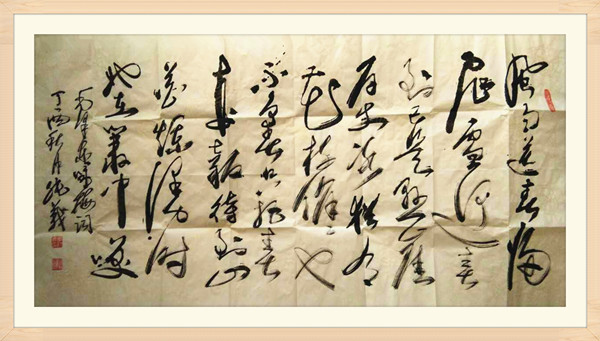 風雨送春归
飛雪迎春
到已是懸崖
百丈冰犹有
花枝俏俏也
不争春只把春
来報待到山
花爛漫时
她在叢中笑
毛泽东咏梅词
丁酉秋月